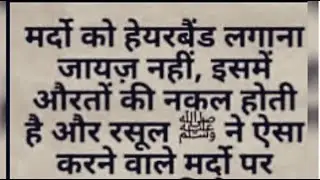 मर्दो को हेयरबैंड लगाना
जायज़ नहीं, इसमें
औरतों की नकल होती
है और रसूल ﷺ ने ऐसा
करने वाले मर्दो पर